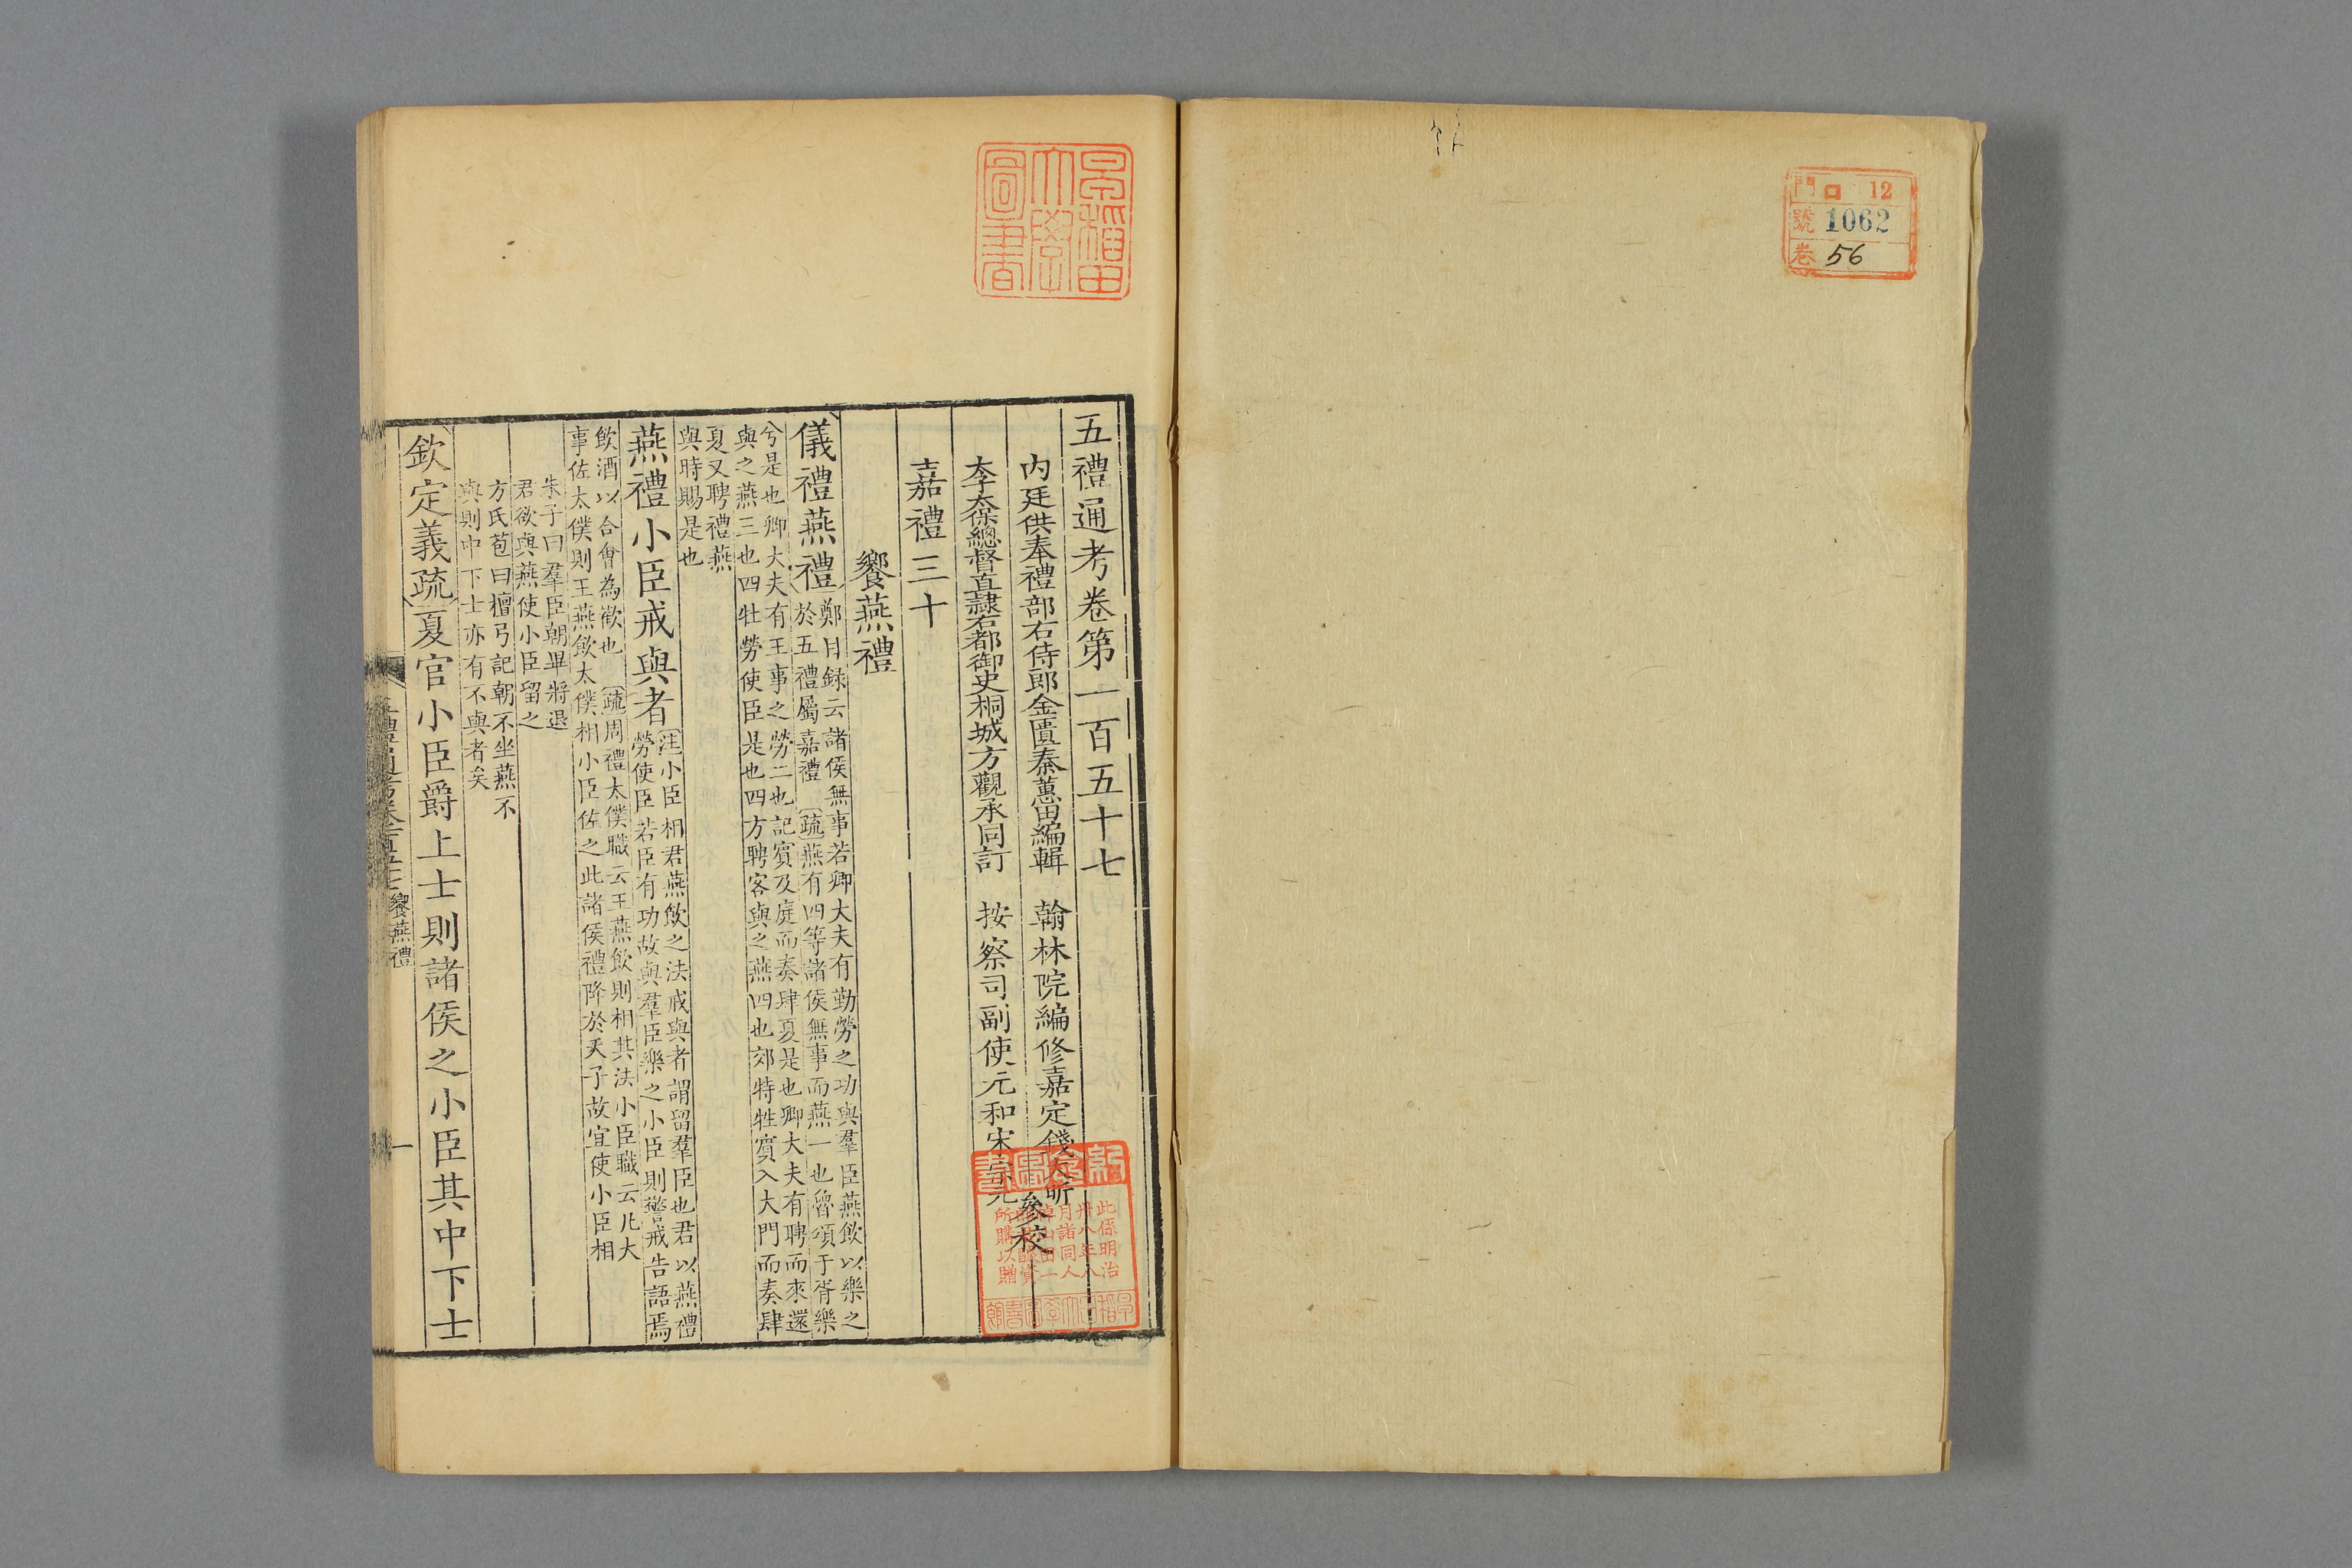 門 ロ 12
號 1062
卷 56
早稻田
大學
圖書
五禮通考卷第一百五十七
內廷供奉禮部右侍郎金匱秦蕙田編輯 翰林院編修嘉定錢大昕
太子太保總督直隸右都御史桐城方觀承同訂 按察司副使元和宋宗元
參校
嘉禮三十
饗燕禮
儀禮燕禮
鄭目錄云諸侯無事若卿大夫有勤勞之功與羣臣燕飮以樂之
於五禮屬嘉禮 疏燕有四等諸侯無事而燕一也魯頌于胥樂
兮是也卿大夫有王事之勞二也記賓及庭而奏肆夏是也卿大夫有聘而來還
與之燕三也四牡勞使臣是也四方聘客與之燕四也郊特牲賓入大門而奏肆
夏又聘禮燕
與時賜是也
燕禮小臣戒與者
注小臣相君燕飮之法戒與者謂留羣臣也君以燕禮
勞使臣若臣有功故與羣臣樂之小臣則警戒告語焉
飮酒以合會為歡也 疏周禮太僕職云王燕飮則相其法小臣職云凡大
事佐太僕則王燕飮太僕相小臣佐之此諸侯禮降於天子故宜使小臣相
朱子曰羣臣朝畢將退
君欲與燕使小臣留之
方氏苞曰檀弓記朝不坐燕不
與則中下士亦有不與者矣
欽定義疏夏官小臣爵上士則諸侯之小臣其中下士
五禮通考卷一百五十七 饗燕禮
一
此係明治
卅八年八
月諸同人
所購以贈